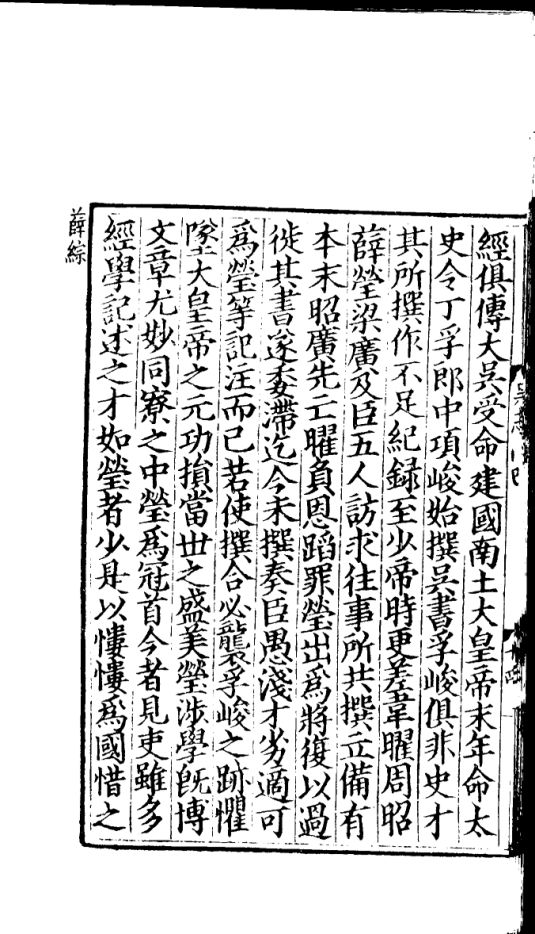 經俱傳大吳受命建國南土大皇帝末年命太
史令丁孚郎中項峻始撰吳書孚峻俱非史才
其所撰作不足紀録至少帝時更差韋曜周昭
薛瑩梁廣及臣五人訪求往事所共撰立備有
本末昭廣先亡曜負恩蹈罪瑩出爲將復以過
徙其書遂委滯迄今未撰奏臣愚淺才劣適可
爲瑩等記注而已若使撰合必襲孚峻之跡懼
墜大皇帝之元功損當世之盛美瑩涉學旣博
文章尤妙同寮之中瑩爲冠首今者見吏雖多
經學記述之才如瑩者少是以慺慺爲國惜之
薛綜